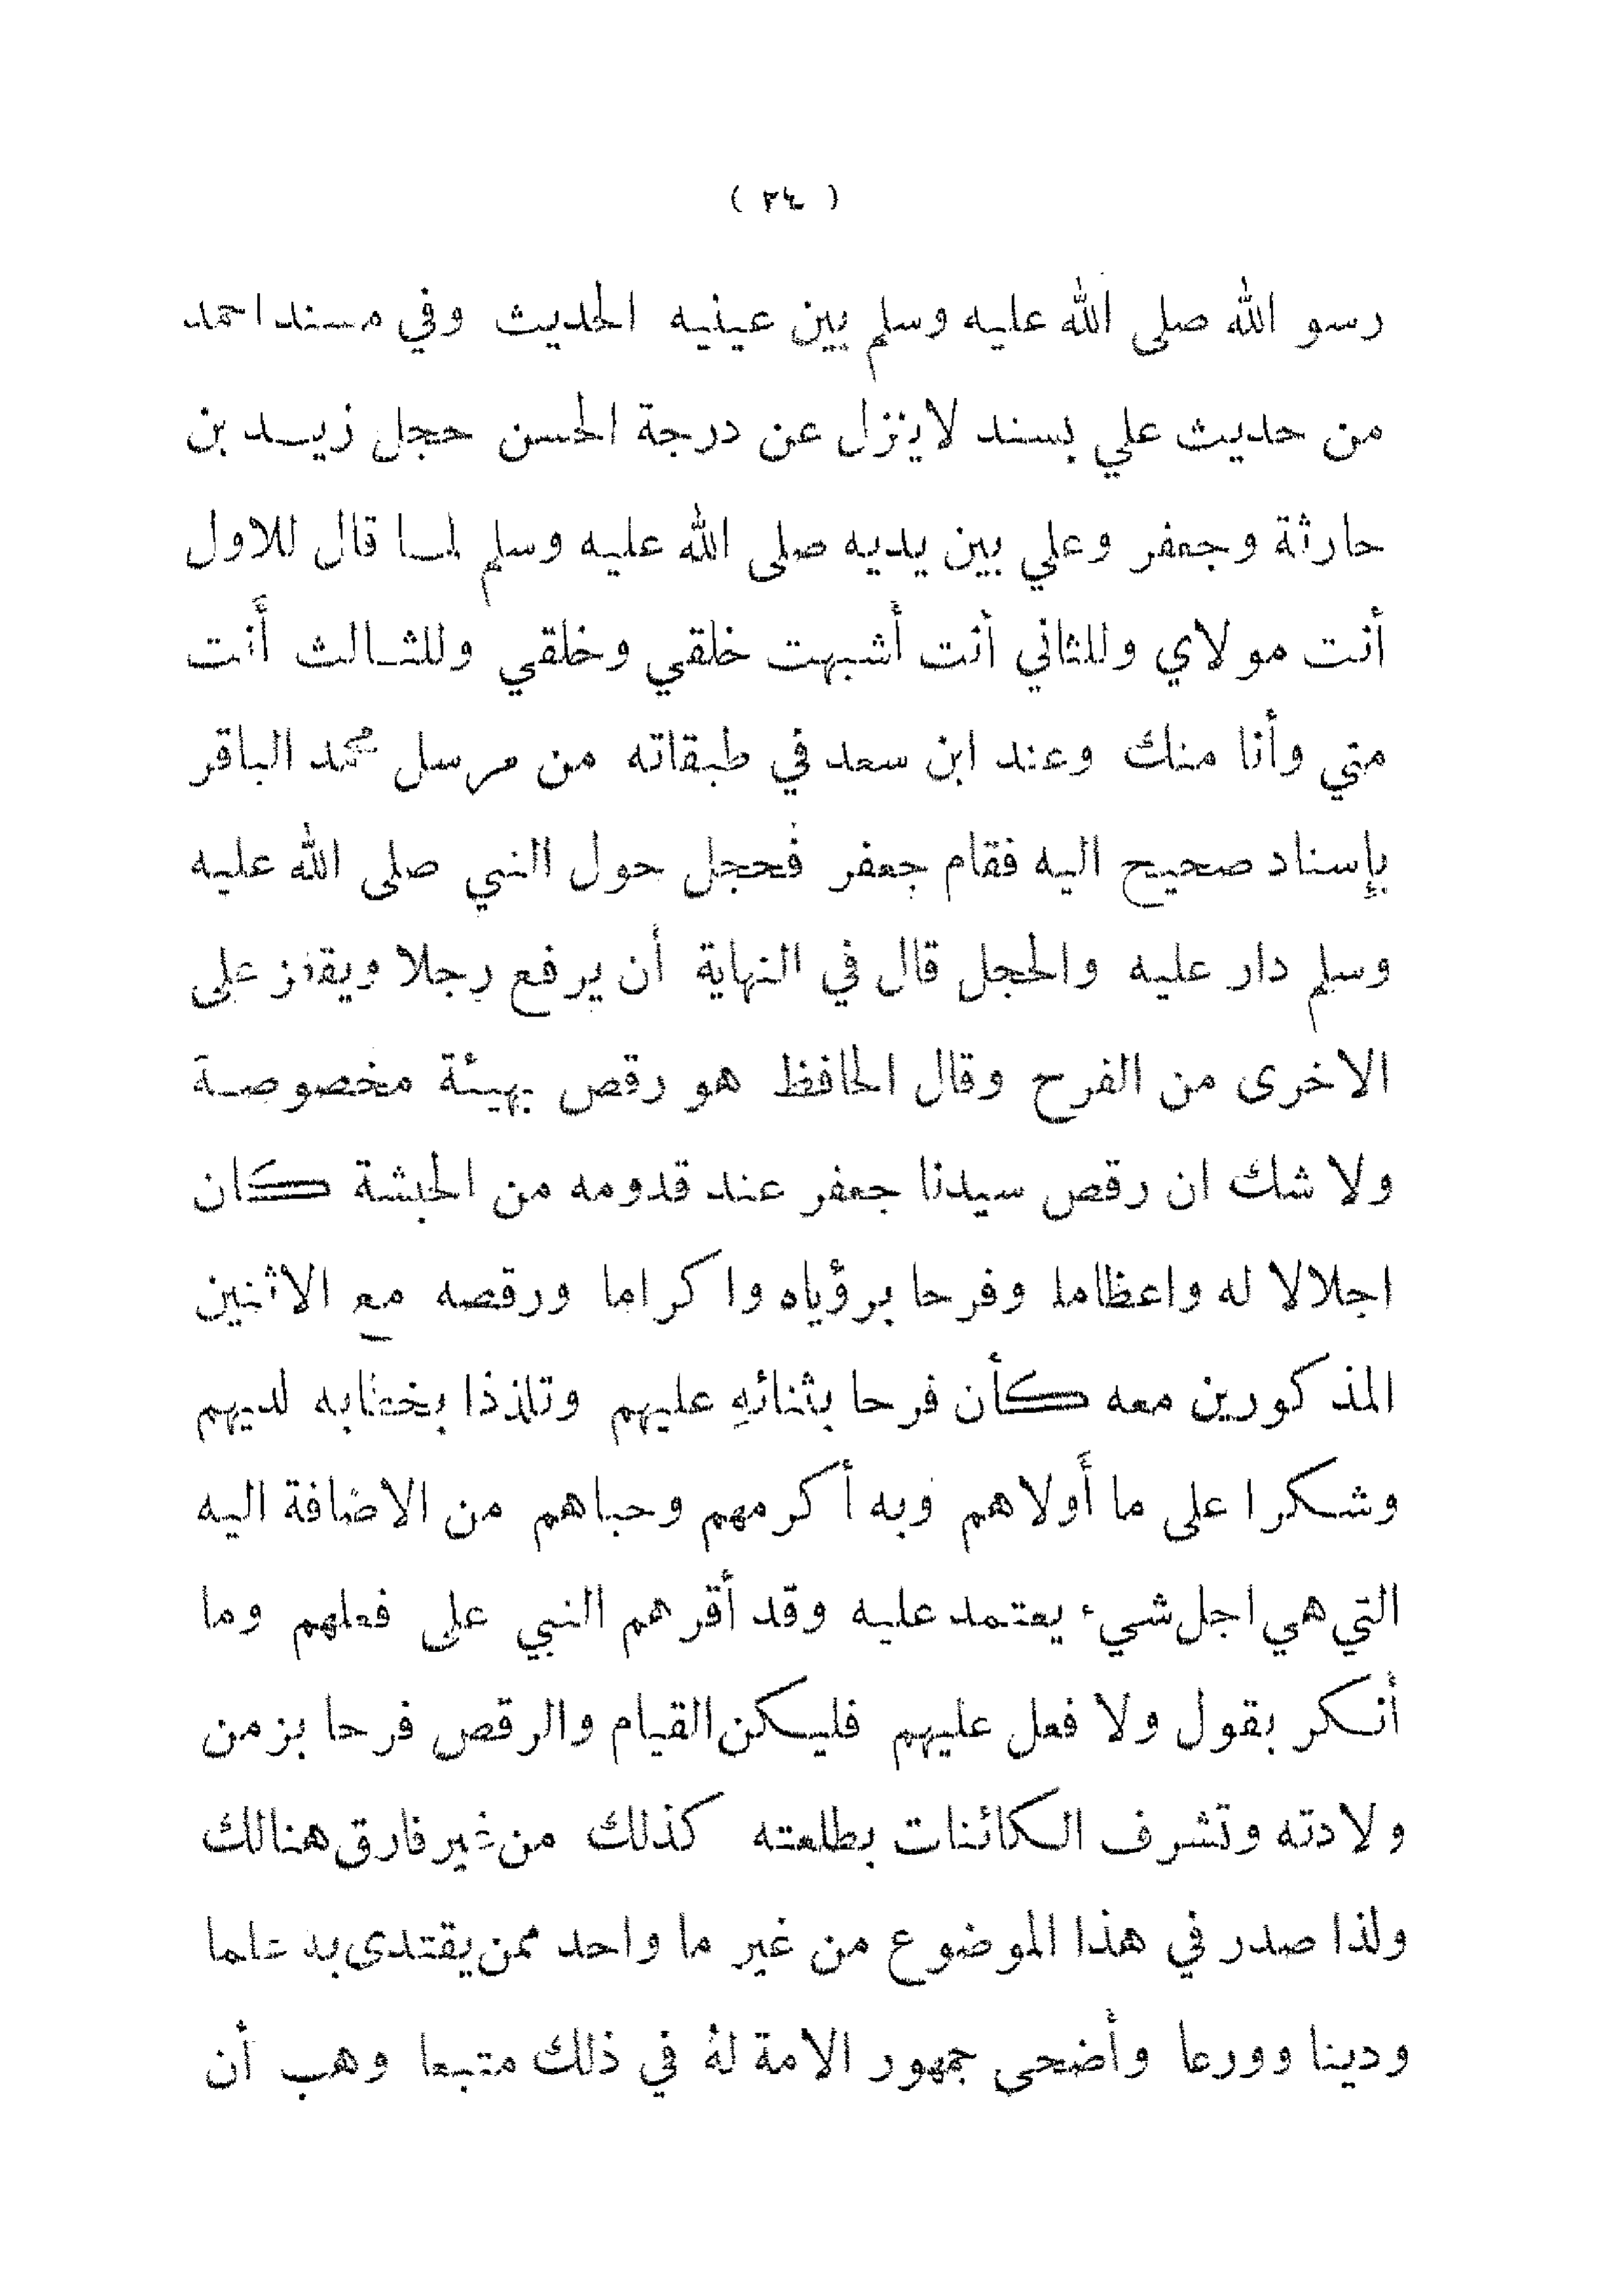 ( ٢٤ )
رسو الله صلى الله عليه وسلم بين عينيه الحديث وفي مسند احمد
من حديث علي بسند لاينزل عن درجة الحسن حجل زيد بن
حارثة وجعفر وعلي بين يديه صلى الله عليه وسلم لما قال للاول
أنت مولاي وللثاني أنت أشبهت خلقي وخلقي وللثالث أنت
مني وأنا منك وعند ابن سعد في طبقاته من مرسل محمد الباقر
بإسناد صحيح اليه فقام جعفر فحجل حول النبي صلى الله عليه
وسلم دار عليه والحجل قال في النهاية أن يرفع رجلا ويقفز على
الاخرى من الفرح وقال الحافظ هو رقص بهيئة مخصوصة
ولا شك ان رقص سيدنا جعفر عند قدومه من الحبشة كان
اجلالا له واعظاما وفرحا برؤياه واكراما ورقصه مع الاثنين
المذكورين معه كأن فرحا بثنائهِ عليهم وتلذذا بخطابه لديهم
وشكرا على ما أولاهم وبه أكرمهم وحباهم من الاضافة اليه
التي هي اجل شيء يعتمد عليه وقد أقرهم النبي على فعلهم وما
أنكر بقول ولا فعل عليهم فليكن القيام والرقص فرحا بزمن
ولادته وتشرف الكائنات بطلعته كذلك من غير فارق هنالك
ولذا صدر في هذا الموضوع من غير ما واحد ممن يقتدى به علما
ودينا وورعا وأضحى جمهور الامة لهُ في ذلك متبعا وهب أن